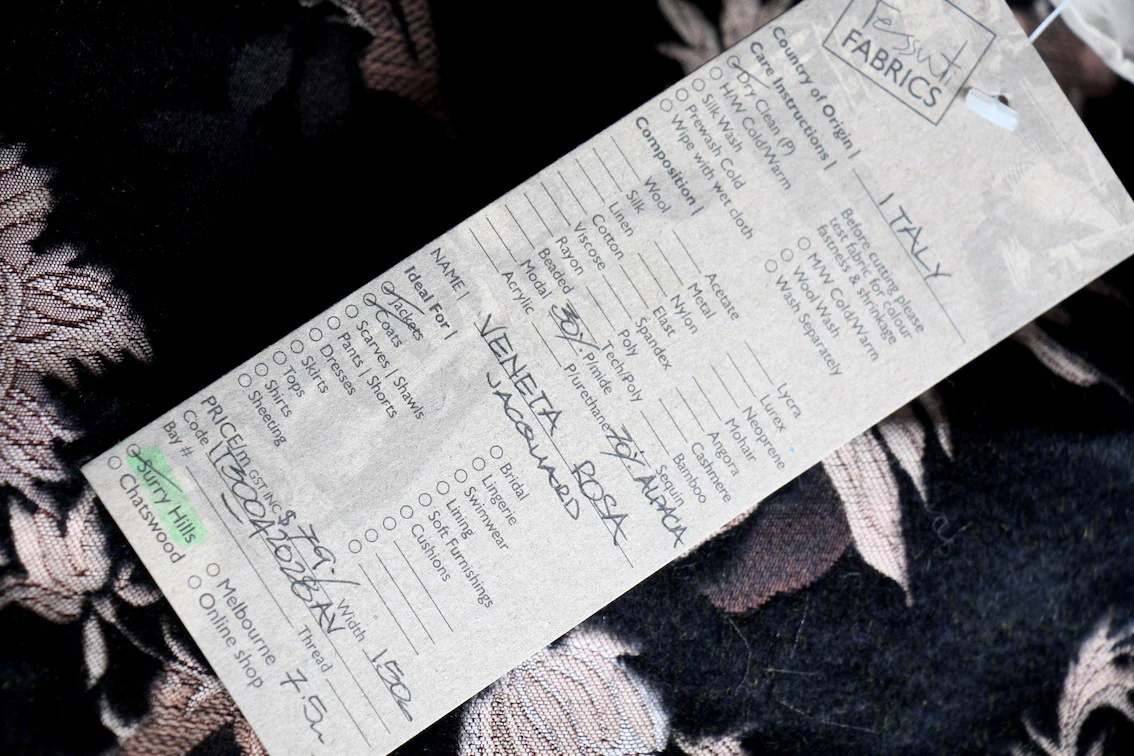 Tessuti
FABRICS
Country of Origin | ITALY
Care Instructions |
Dry Clean (P)
H/W Cold/Warm
Silk Wash
Prewash Cold
Wipe with wet cloth
Before cutting please
test fabric for colour
fastness & shrinkage
M/W Cold/Warm
Wool Wash
Wash Separately
Composition |
Wool
Silk
Linen
Cotton
Viscose
Rayon
Beaded
Modal
Acrylic
Acetate
Metal
Nylon
Elast
Spandex
Poly
Tech/Poly
30% P/mide
P/urethane
Lycra
Lurex
Neoprene
Mohair
Angora
Cashmere
Bamboo
Sequin
70% ALPACA
NAME | VENETA ROSA
JACQUARD
Ideal For |
Jackets
Coats
Scarves | Shawls
Dresses
Pants | Shorts
Skirts
Tops
Shirts
Sheeting
Bridal
Lingerie
Swimwear
Lining
Soft Furnishings
Cushions
PRICE/m GST INC $79/ Width 150
Code
Bay #
Thread 7.5m
Surry Hills
Chatswood
Melbourne
Online shop